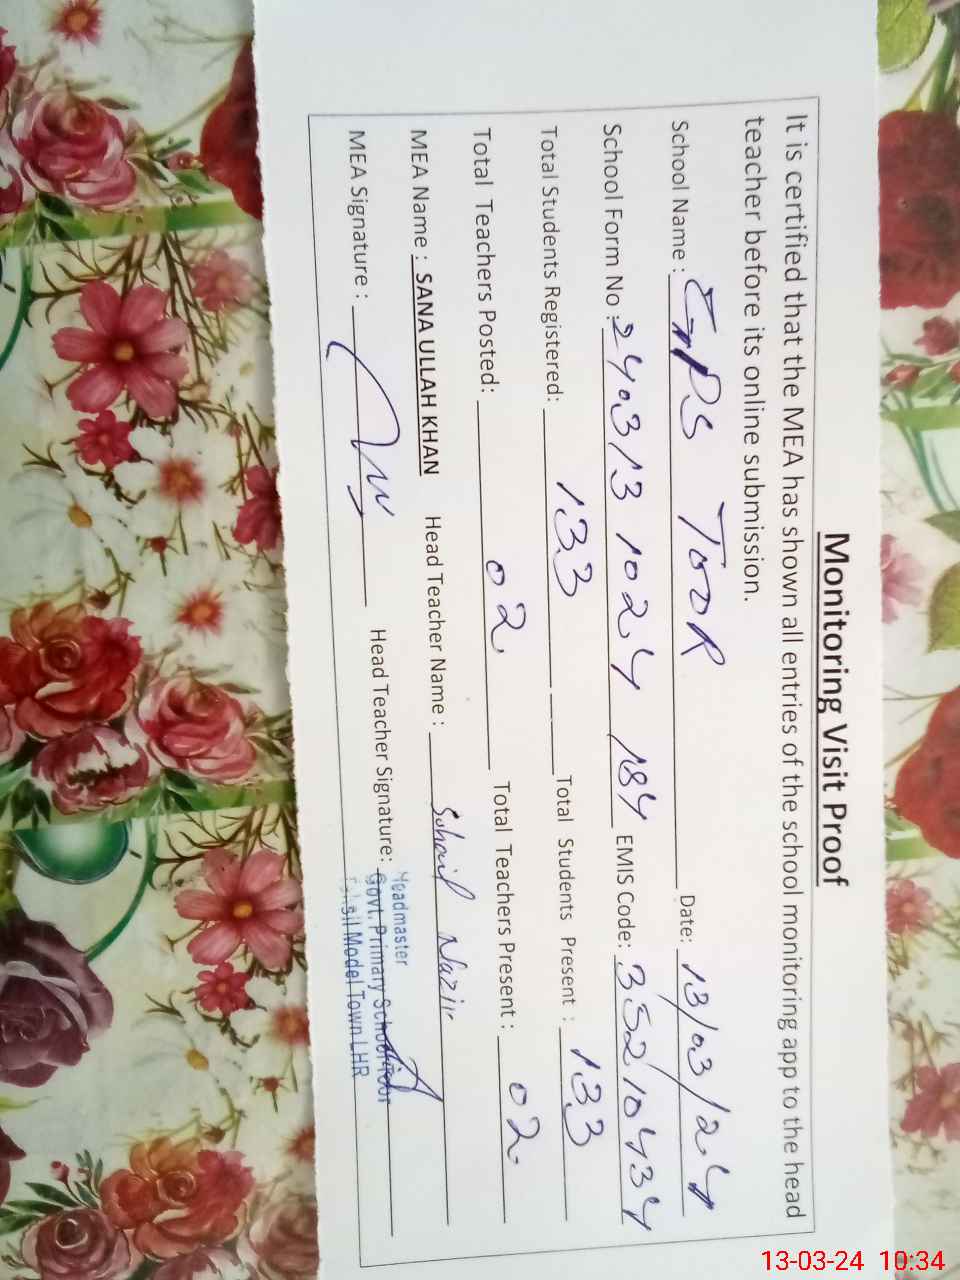 Monitoring Visit Proof
It is certified that the MEA has shown all entries of the school monitoring app to the head
teacher before its online submission.
School Name : GPS TOOR Date: 13/03/24
School Form No : 240313 1024 184 EMIS Code: 35210434
Total Students Registered: 133 Total Students Present : 133
Total Teachers Posted: 02 Total Teachers Present : 02
MEA Name : SANA ULLAH KHAN Head Teacher Name : Sohail Nazir
MEA Signature : Head Teacher Signature:
Headmaster
Govt. Primary School Toor
Tehsil Model Town LHR
13-03-24 10:34